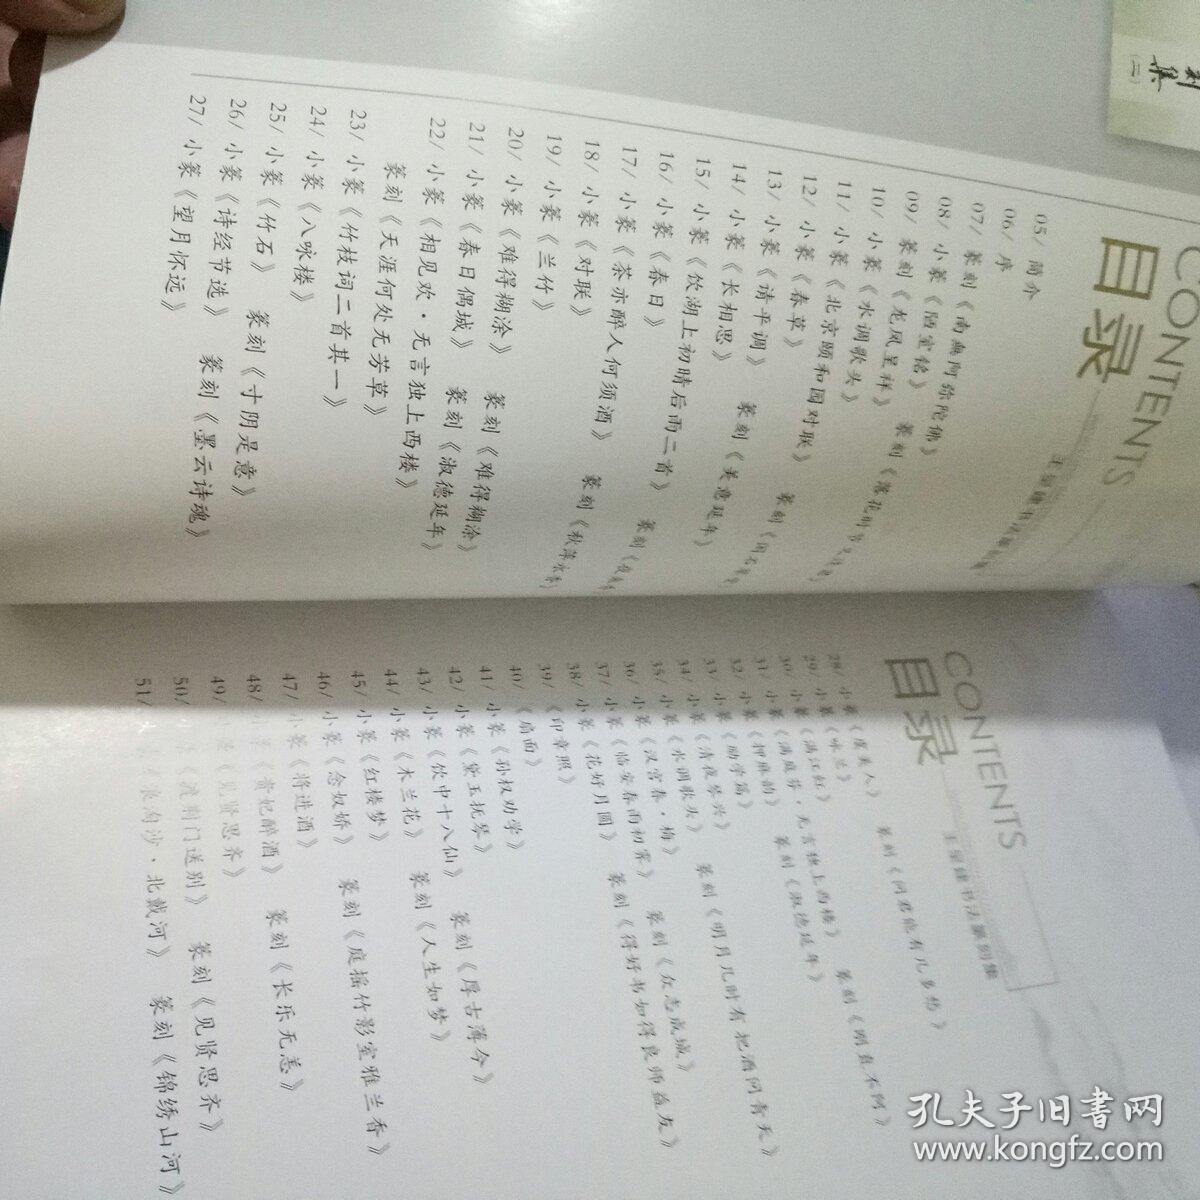 CONTENTS
目录
05/ 简介
06/ 序
07/ 篆刻《南無阿弥陀佛》
08/ 小篆《陋室铭》
09/ 篆刻《龙凤呈祥》
10/ 小篆《水调歌头》
11/ 小篆《北京颐和园对联》
12/ 小篆《春草》
13/ 小篆《请平调》
14/ 小篆《长相思》 篆刻《美意延年》
15/ 小篆《饮湖上初晴后雨二首》
16/ 小篆《春日》
17/ 小篆《茶亦醉人何须酒》
18/ 小篆《对联》
19/ 小篆《兰竹》
20/ 小篆《难得糊涂》 篆刻《难得糊涂》
21/ 小篆《春日偶城》 篆刻《淑德延年》
22/ 小篆《相见欢·无言独上西楼》
篆刻《天涯何处无芳草》
23/ 小篆《竹枝词二首其一》
24/ 小篆《八咏楼》
25/ 小篆《竹石》 篆刻《寸阴是意》
26/ 小篆《诗经节选》
27/ 小篆《望月怀远》 篆刻《墨云诗魂》
CONTENTS
目录
28/ 小篆《虞美人》 篆刻《问君能有几多愁》
29/ 小篆《咏兰》
30/ 小篆《满江红》
31/ 小篆《满庭芳·无言独上西楼》 篆刻《刚直不阿》
32/ 小篆
33/ 小篆《励学篇》
34/ 小篆《清夜琴兴》
35/ 小篆《水调歌头》 篆刻《明月几时有把酒问青天》
36/ 小篆《汉宫春·梅》
37/ 小篆《临安春雨初霁》 篆刻《众志成城》
38/ 小篆《花好月圆》 篆刻《得好书如得良师益友》
39/《印章照》
40/《扇面》
41/ 小篆《孙权劝学》
42/ 小篆《黛玉抚琴》
43/ 小篆《饮中十八仙》 篆刻《厚古薄今》
44/ 小篆《木兰花》 篆刻《人生如梦》
45/ 小篆《红楼梦》
46/ 小篆《念奴娇》 篆刻《庭摇竹影室雅兰香》
47/ 小篆《将进酒》
48/ 小篆《贵妃醉酒》 篆刻《长乐无恙》
49/ 小篆《见贤思齐》
50/ 《渡荆门送别》 篆刻《见贤思齐》
51/ 《浪淘沙·北戴河》 篆刻《锦绣山河》
集
(二)
孔夫子旧书网
www.kongfz.com